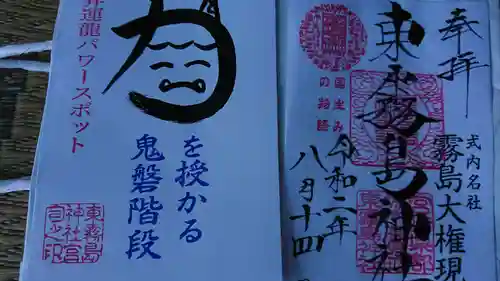 奉拝
式内名社
霧島大権現
東霧島神社
国生み
令和二年
八月十四
を授かる
鬼磐階段
昇運龍パワースポット
東霧島
神社宮
司之印